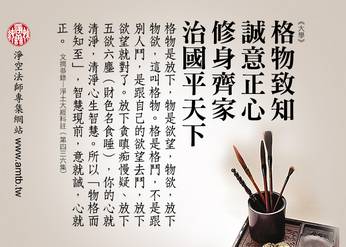 《大學》
格物致知
誠意正心
修身齊家
治國平天下
格物是放下，物是欲望，物欲，放下
物欲，這叫格物。格是格鬥，不是跟
別人鬥，是跟自己的欲望去鬥，放下
欲望就對了。放下貪瞋痴慢疑、放下
五欲六塵（財色名食睡），你的心就
清淨，清淨心生智慧。所以「物格而
後知至」，智慧現前，意就誠，心就
正。 文摘恭錄—淨土大經科註（第四三六集）
淨空法師專集網站 www.amtb.tw